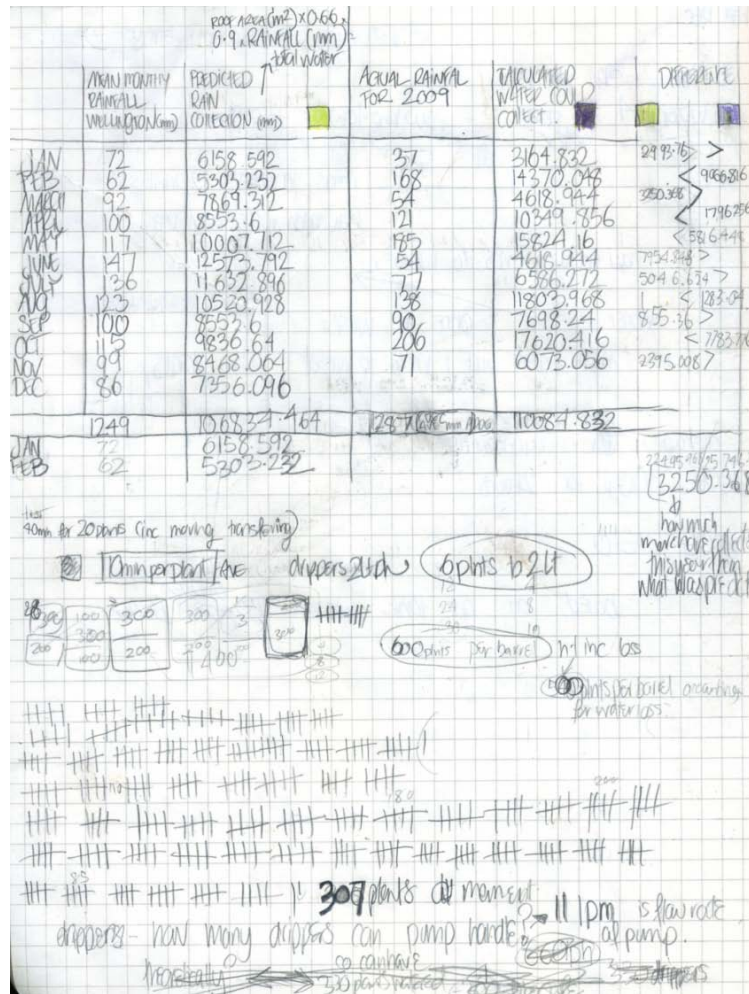 ROOF AREA (m²) × 0.66 ×
0.9 × RAINFALL (mm) =
total water
MEAN MONTHLY RAINFALL WELLINGTON (mm) PREDICTED RAIN COLLECTION (mm) ACTUAL RAINFAL FOR 2009 CALCULATED WATER COULD COLLECT DIFFERENCE
JAN 72 6158.592 37 3164.832 2993.76 >
FEB 62 5303.232 168 14370.048 < 9066.816
MARCH 92 7869.312 54 4618.944 3250.368 >
APRIL 100 8553.6 121 10349.856 < 1796.256
MAY 117 10007.712 185 15824.16 < 5816.448
JUNE 147 12573.792 54 4618.944 7954.848 >
JULY 136 11632.896 77 6586.272 5046.624 >
AUG 123 10520.928 138 11803.968 < 1283.04
SEP 100 8553.6 90 7698.24 855.36 >
OCT 115 9836.64 206 17620.416 < 7783.776
NOV 99 8468.064 71 6073.056 2395.008 >
DEC 86 7356.096
1249 106834.464 1287 110084.832
JAN 72 6158.592
FEB 62 5303.232
3250.368
how much
more have collected
this year than
what was predicted
40min for 20 plants (inc moving transfering)
10min per plant AVE drippers 2Lph 6 plnts to 2L
12 4
24 8
300 300
300 3 300
200 100 200 1400
600 plnts per barrel not inc loss
500 plnts per barrel accounting
for water loss
200
180
85
307 plants at moment
drippers - how many drippers can pump handle? 11 lpm is flow rate
of pump.
theoretically so can have
330 plants drippers